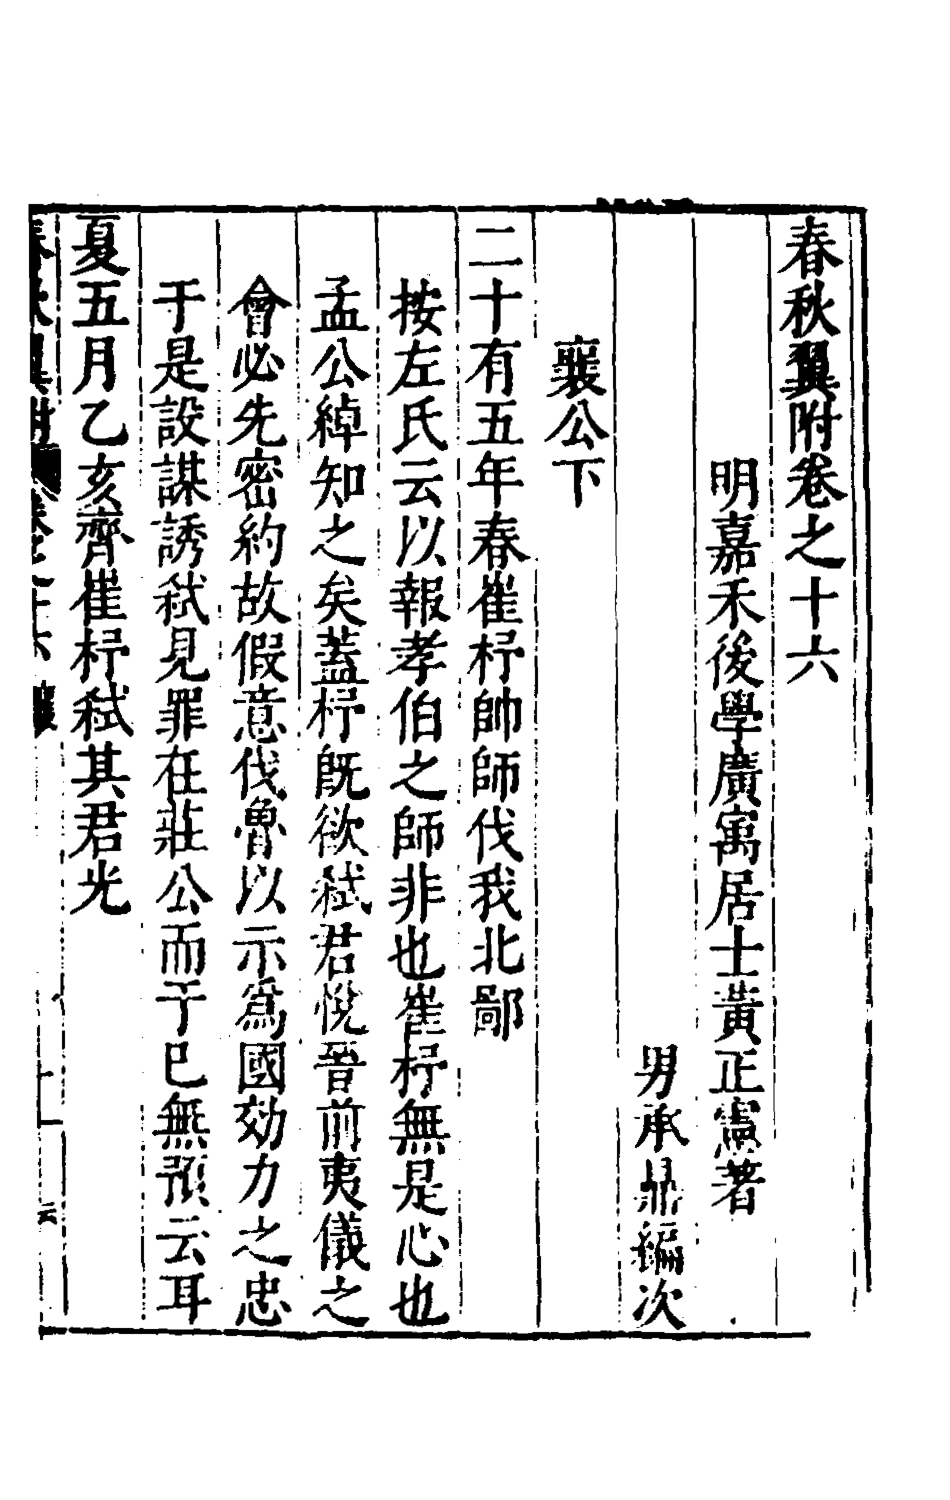 春秋翼附卷之十六
明嘉禾後學廣寓居士黃正憲著
男承鼎編次
襄公下
二十有五年春崔杼帥師伐我北鄙
按左氏云以報孝伯之師非也崔杼無是心也
孟公綽知之矣蓋杼旣欲弑君悅晉前夷儀之
會必先密約故假意伐魯以示爲國効力之忠
于是設謀誘弑見罪在莊公而于已無預云耳
夏五月乙亥齊崔杼弑其君光